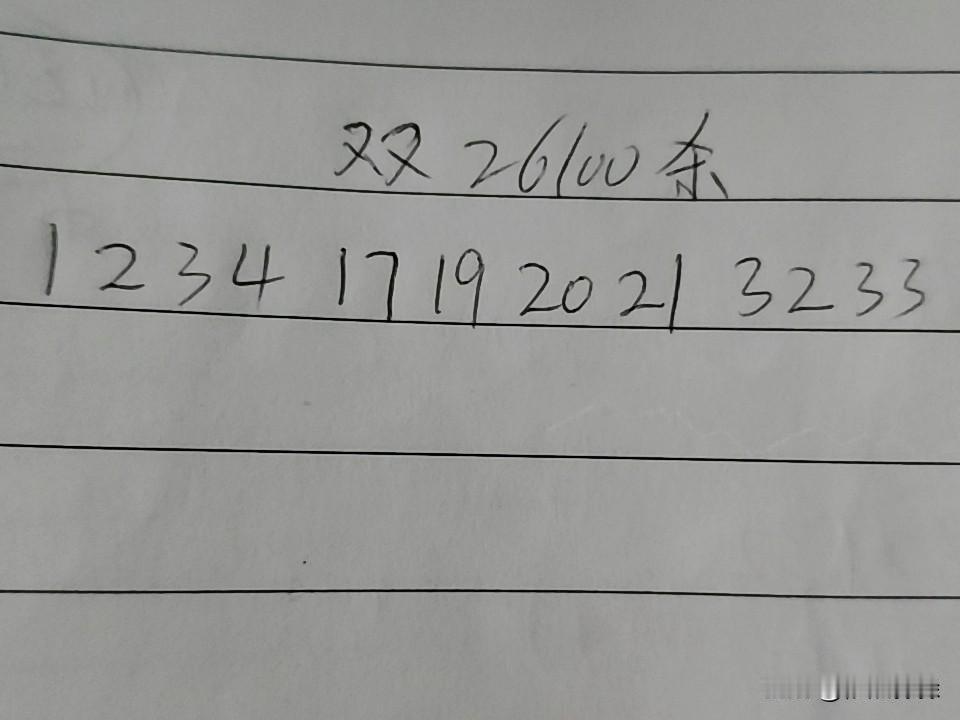 双 26100 杀
1 2 3 4 17 19 20 21 32 33